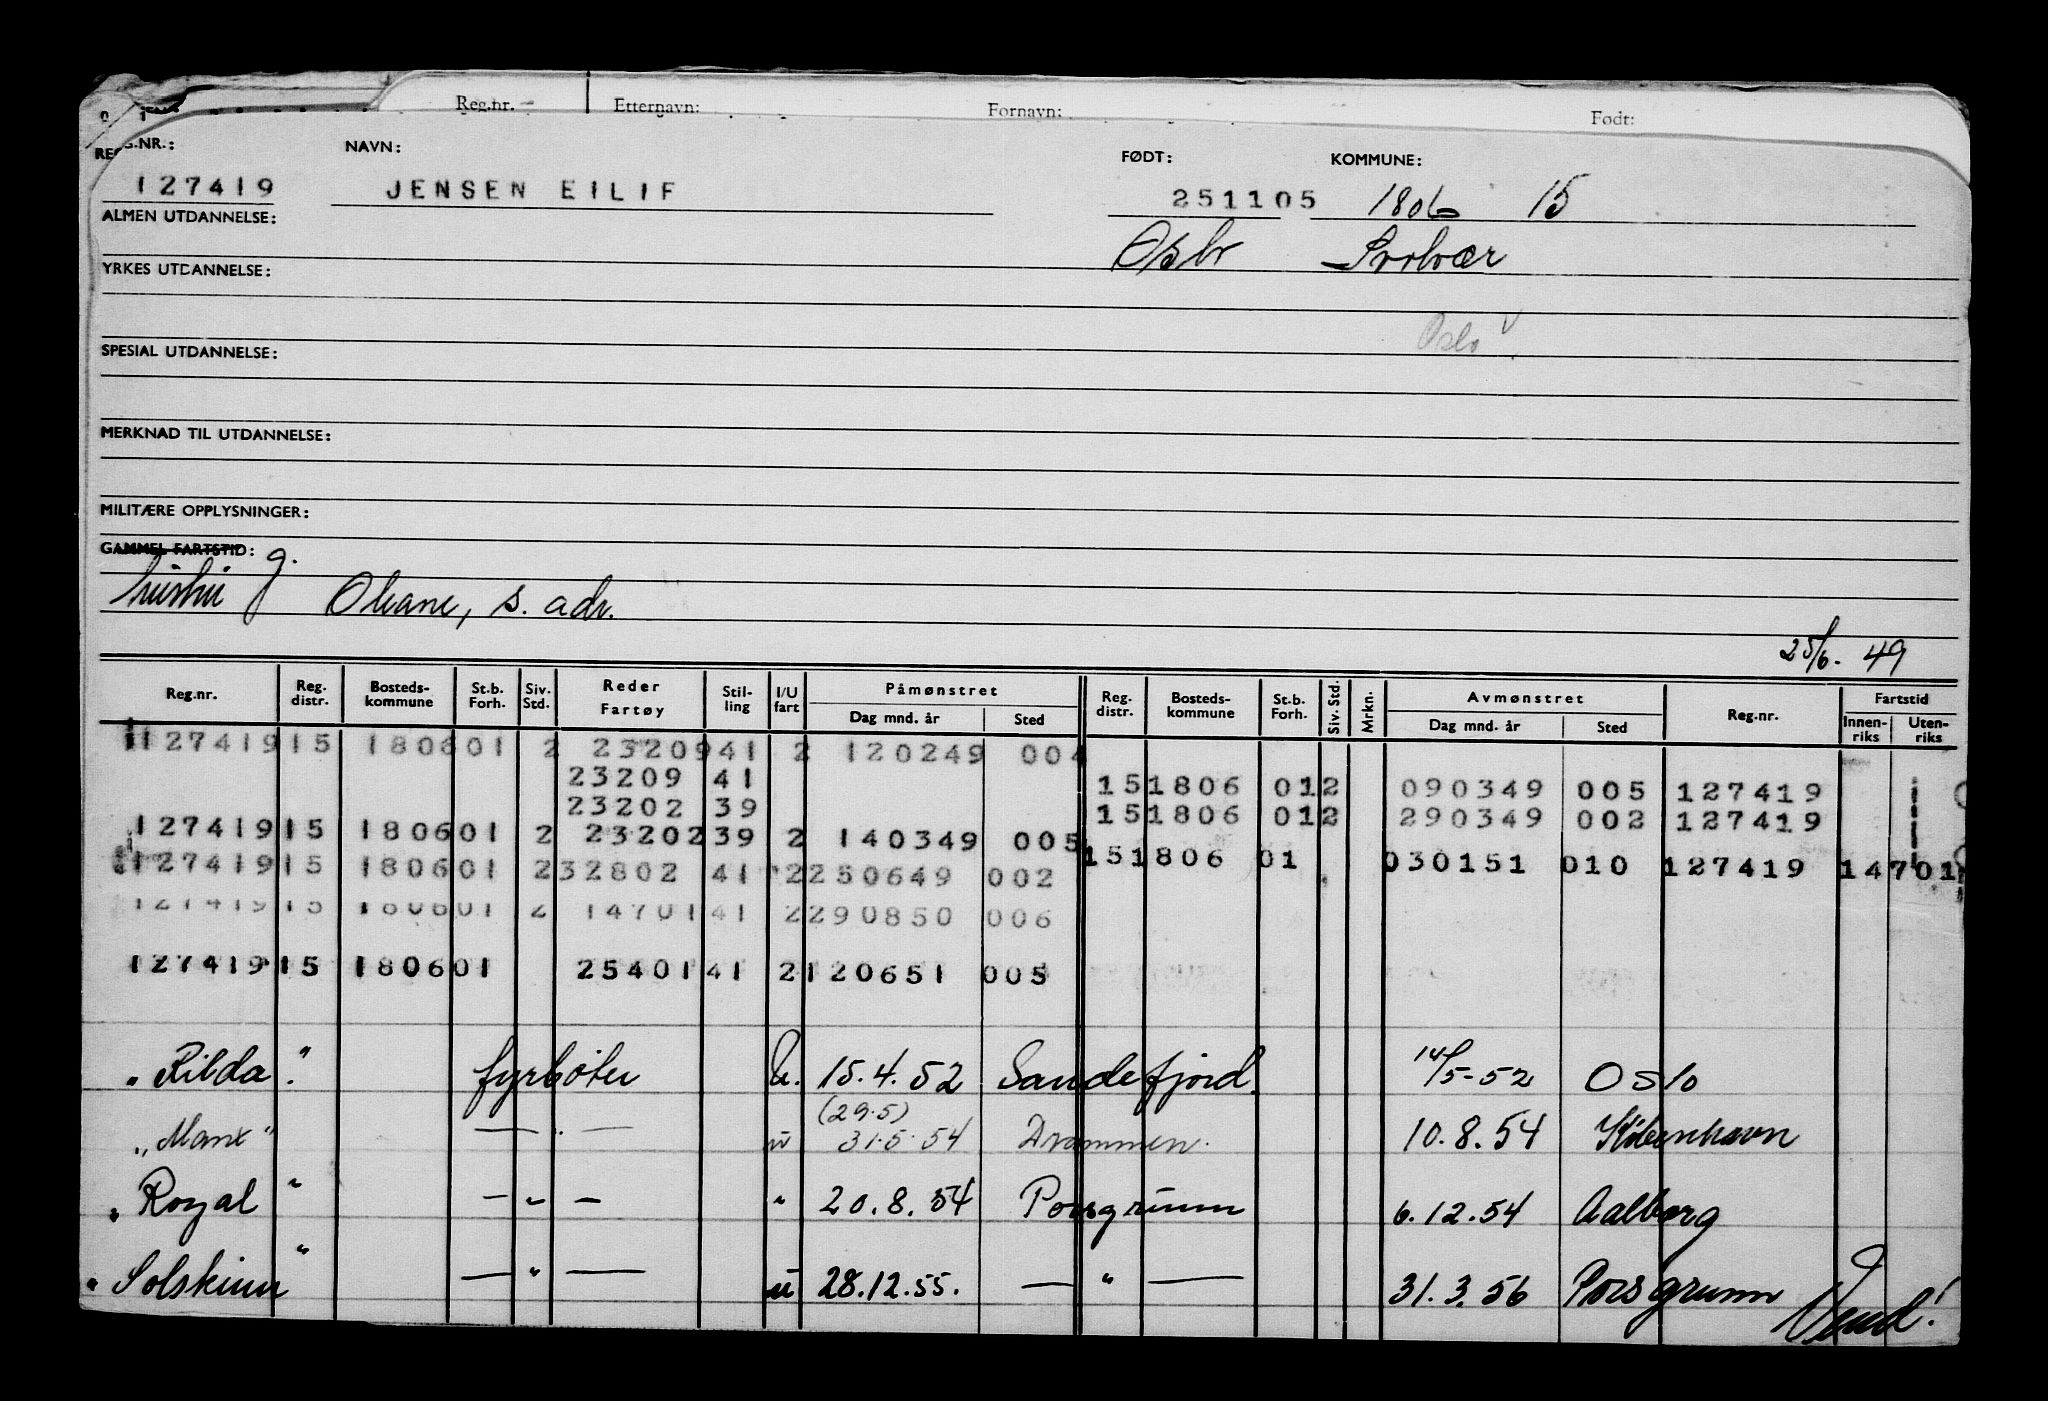 Reg.nr. Etternavn: Fornavn: Født:
REG.NR.: NAVN: FØDT: KOMMUNE:
127419 JENSEN EILIF 251105 1806 15
ALMEN UTDANNELSE: Oslo Svolvær
YRKES UTDANNELSE:
Oslo v
SPESIAL UTDANNELSE:
MERKNAD TIL UTDANNELSE:
MILITÆRE OPPLYSNINGER:
GAMMEL FARTSTID: g.
hustru Oleane, s. adr.
25/6. 49
Reg.nr. Reg. distr. Bosteds- kommune St.b. Forh. Siv. Std. Reder Fartøy Stil- ling I/U fart Påmønstret Dag mnd. år Sted Reg. distr. Bosteds- kommune St.b. Forh. Siv. Std. Mrkn. Avmønstret Dag mnd. år Sted Reg.nr. Fartstid Innen- riks Uten- riks
127419 15 1806 01 2 23209 41 2 120249 004
23209 41 15 1806 01 2 090349 005 127419
23202 39 15 1806 01 2 290349 002 127419
127419 15 1806 01 2 23202 39 2 140349 005
127419 15 1806 01 2 32802 41 2 250649 002 15 1806 01 030151 010 127419 14701
127419 15 1806 01 2 14701 41 2 290850 006
127419 15 1806 01 25401 41 2 120651 005
"Rilda" fyrbøter U. 15.4.52 Sandefjord. 14/5-52 Oslo
(29.5)
"Manx" — " — u 31.5.54 Drammen. 10.8.54 København
"Royal" — " — " 20.8.54 Porsgrunn 6.12.54 Aalborg
"Solskinn" — " — u 28.12.55. — " — 31.3.56 Porsgrunn
Vend!